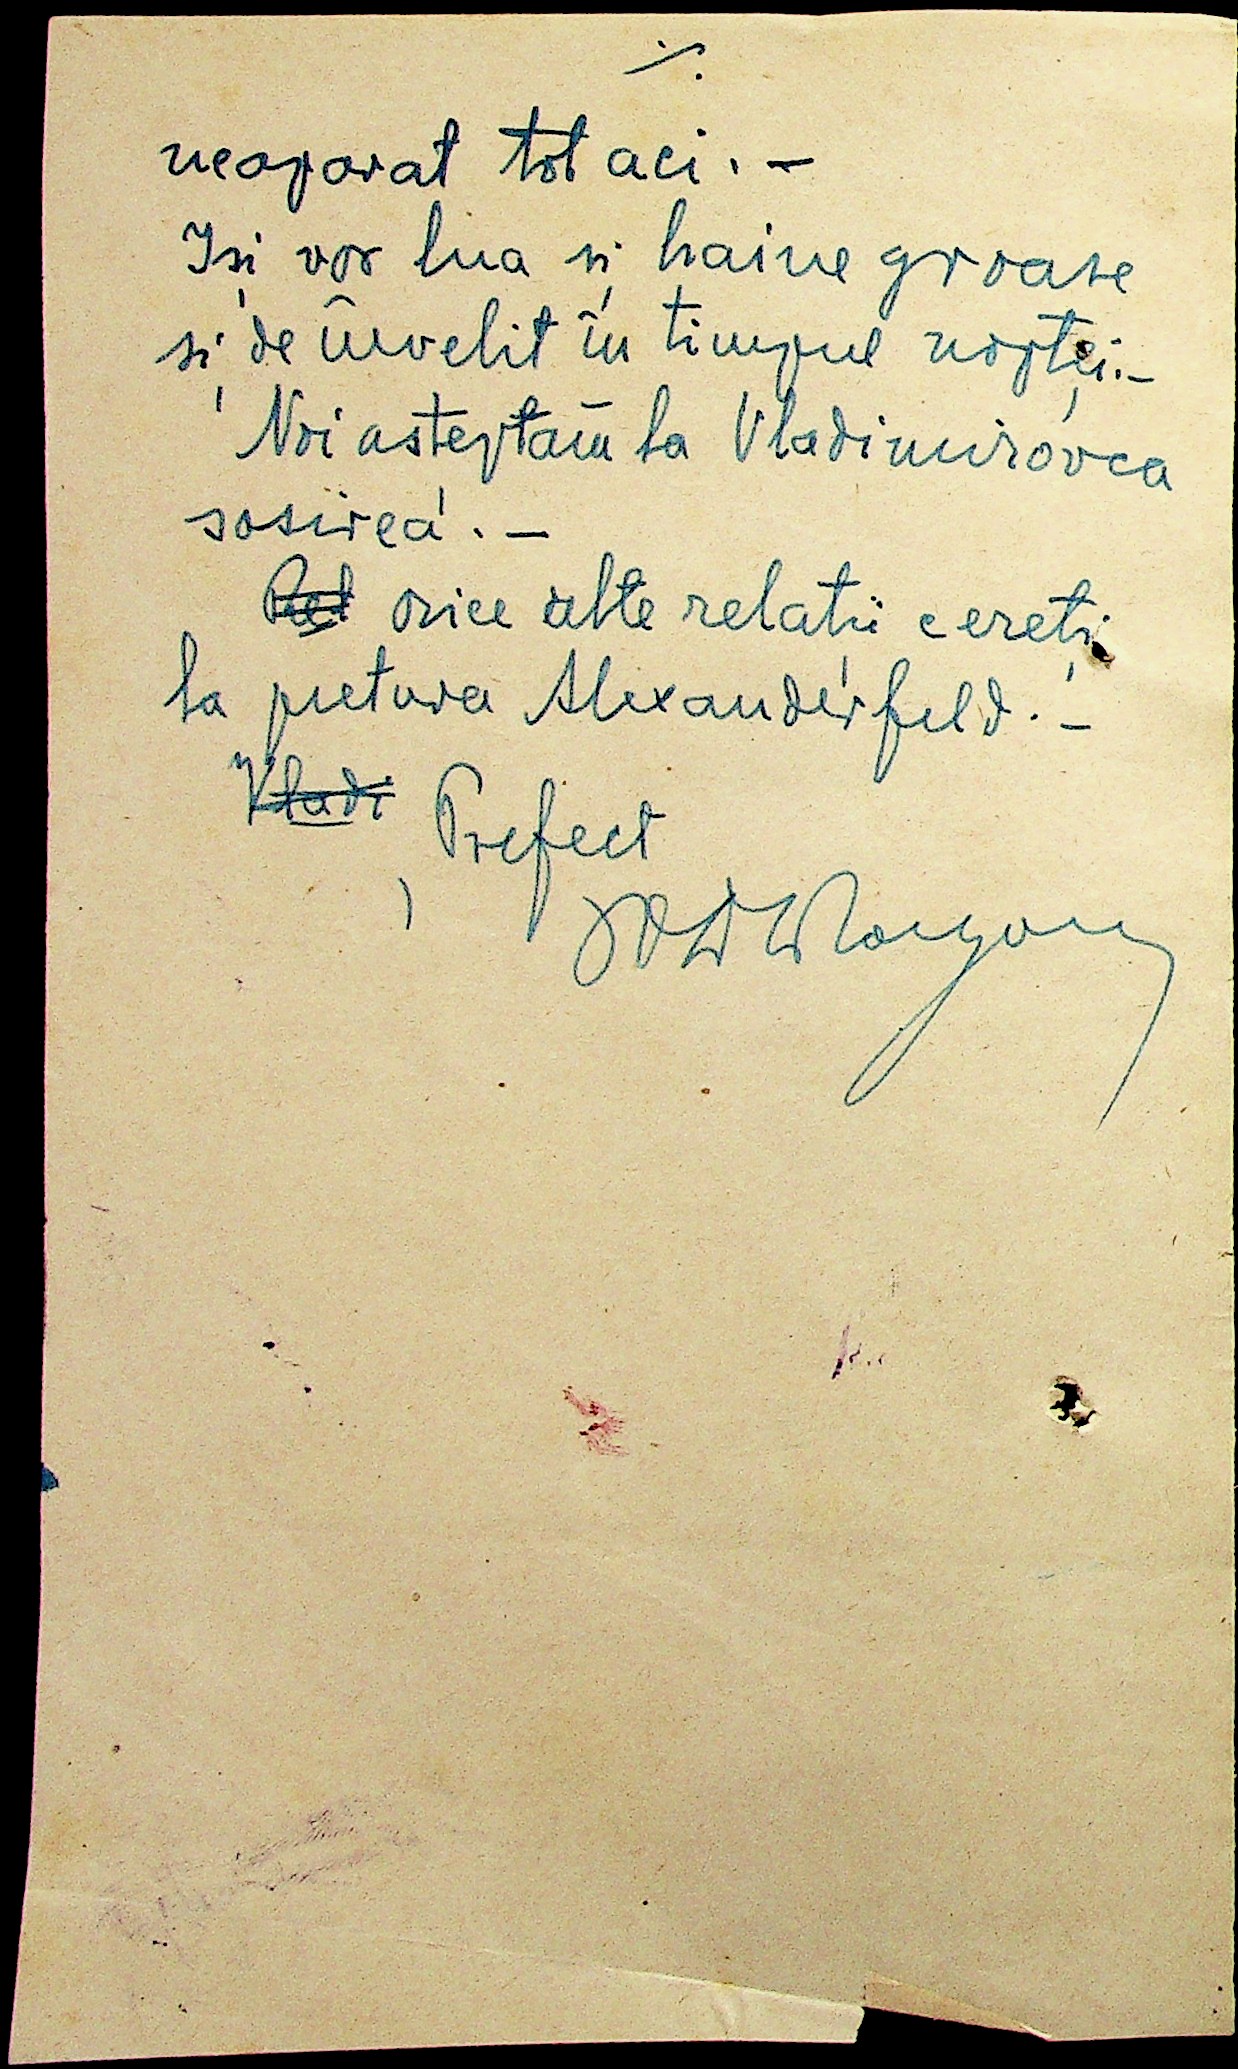 ./.
neapărat tot aci. –
Iși vor lua și haine groase
și de învelit în timpul nopței. –
Noi așteptăm la Vladimirovca
sosirea. –
orice alte relații cereți
la pretura Alexanderfeld. –
Vladi Prefect